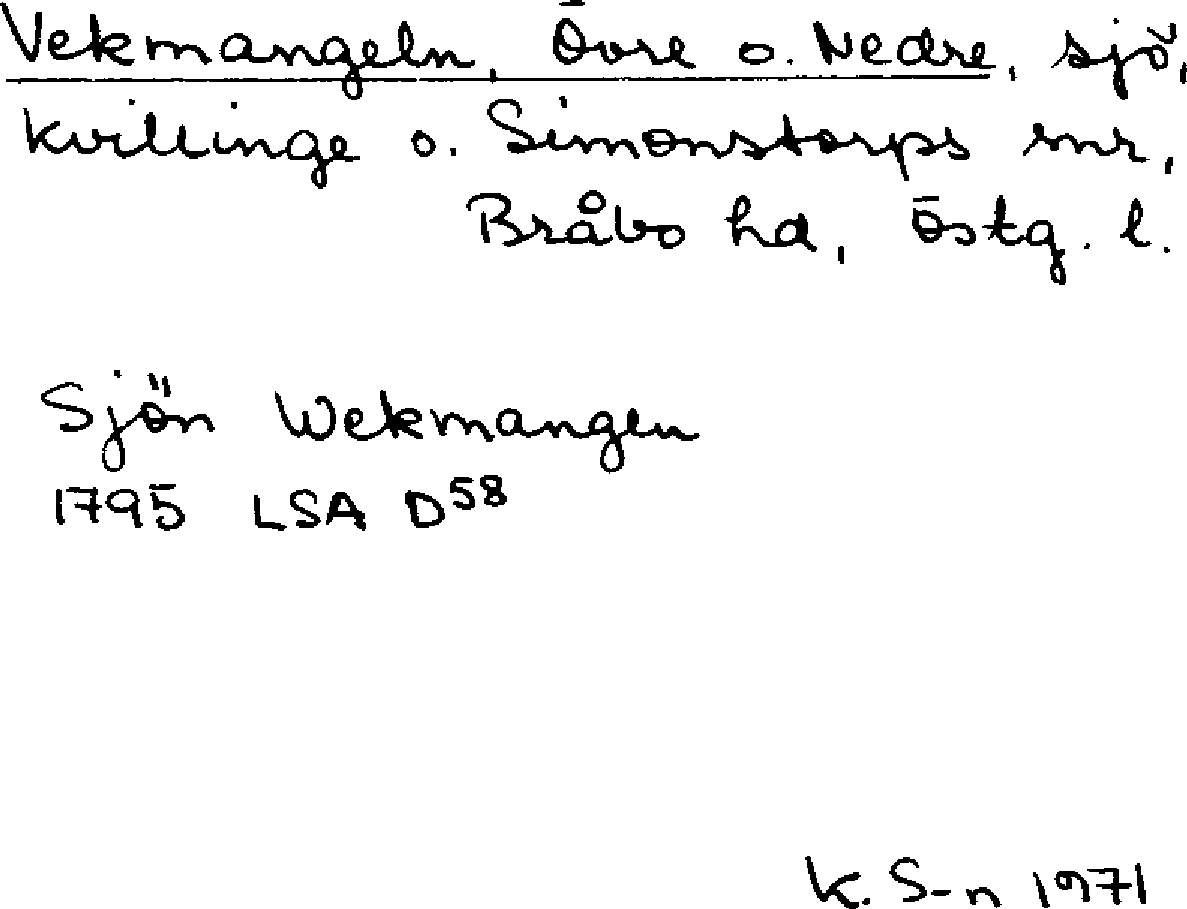 Vekmangeln, Övre o. Nedre, sjö,
Kvillinge o. Simonstorps snr,
Bråbo hd, Östg. l.
Sjön Wekmangen
1795 LSA D58
K. S-n 1971